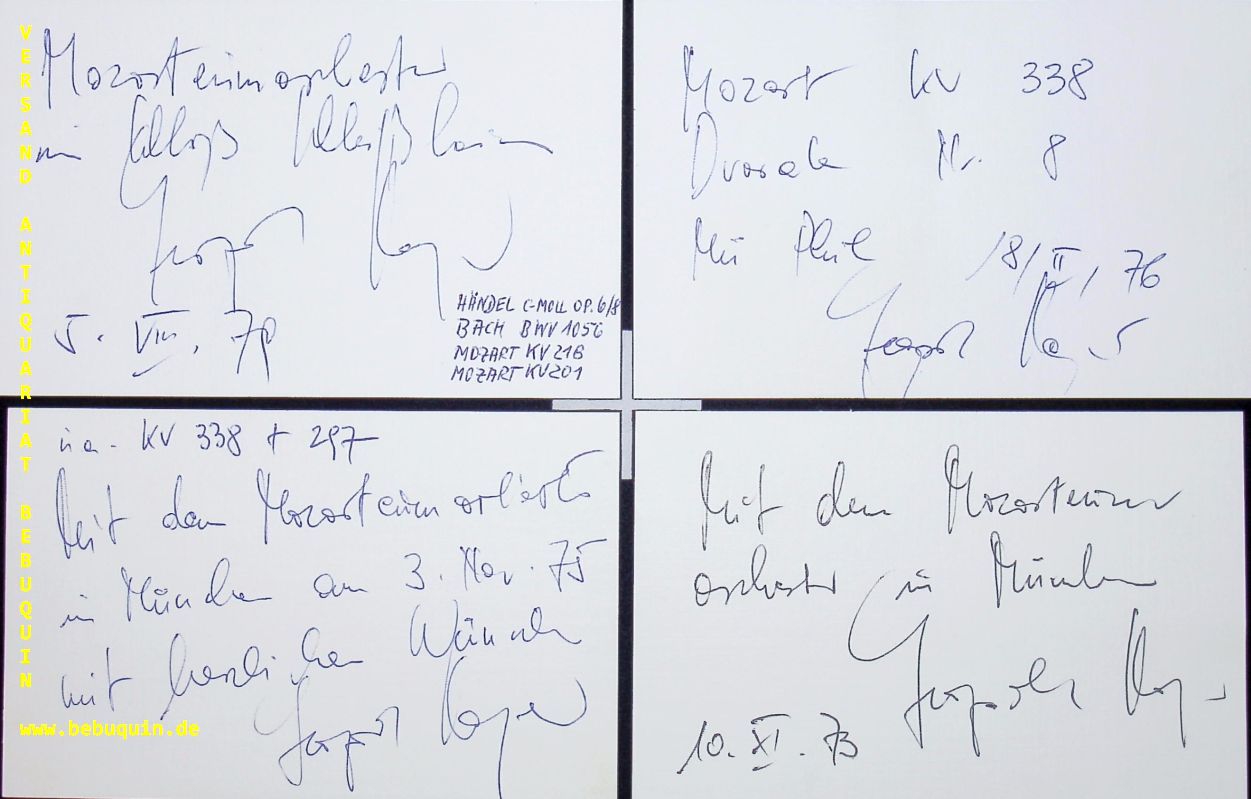 Mozarteumorchester
in Schloß Schleißheim
Leopold Hager
5. VIII. 78
HÄNDEL C-MOLL OP. 6/8
BACH BWV 1056
MOZART KV 216
MOZART KV 201
Mozart KV 338
Dvorak Nr. 8
Mü Phil 18/II/76
Leopold Hager
u.a. KV 338 + 297
Mit dem Mozarteumorchester
in München am 3. Nov. 75
mit herzlichen Wünschen
Leopold Hager
Mit dem Mozarteum
orchester in München
Leopold Hager
10. XI. 73
VERSAND ANTIQUARIAT BEBUQUIN
www.bebuquin.de